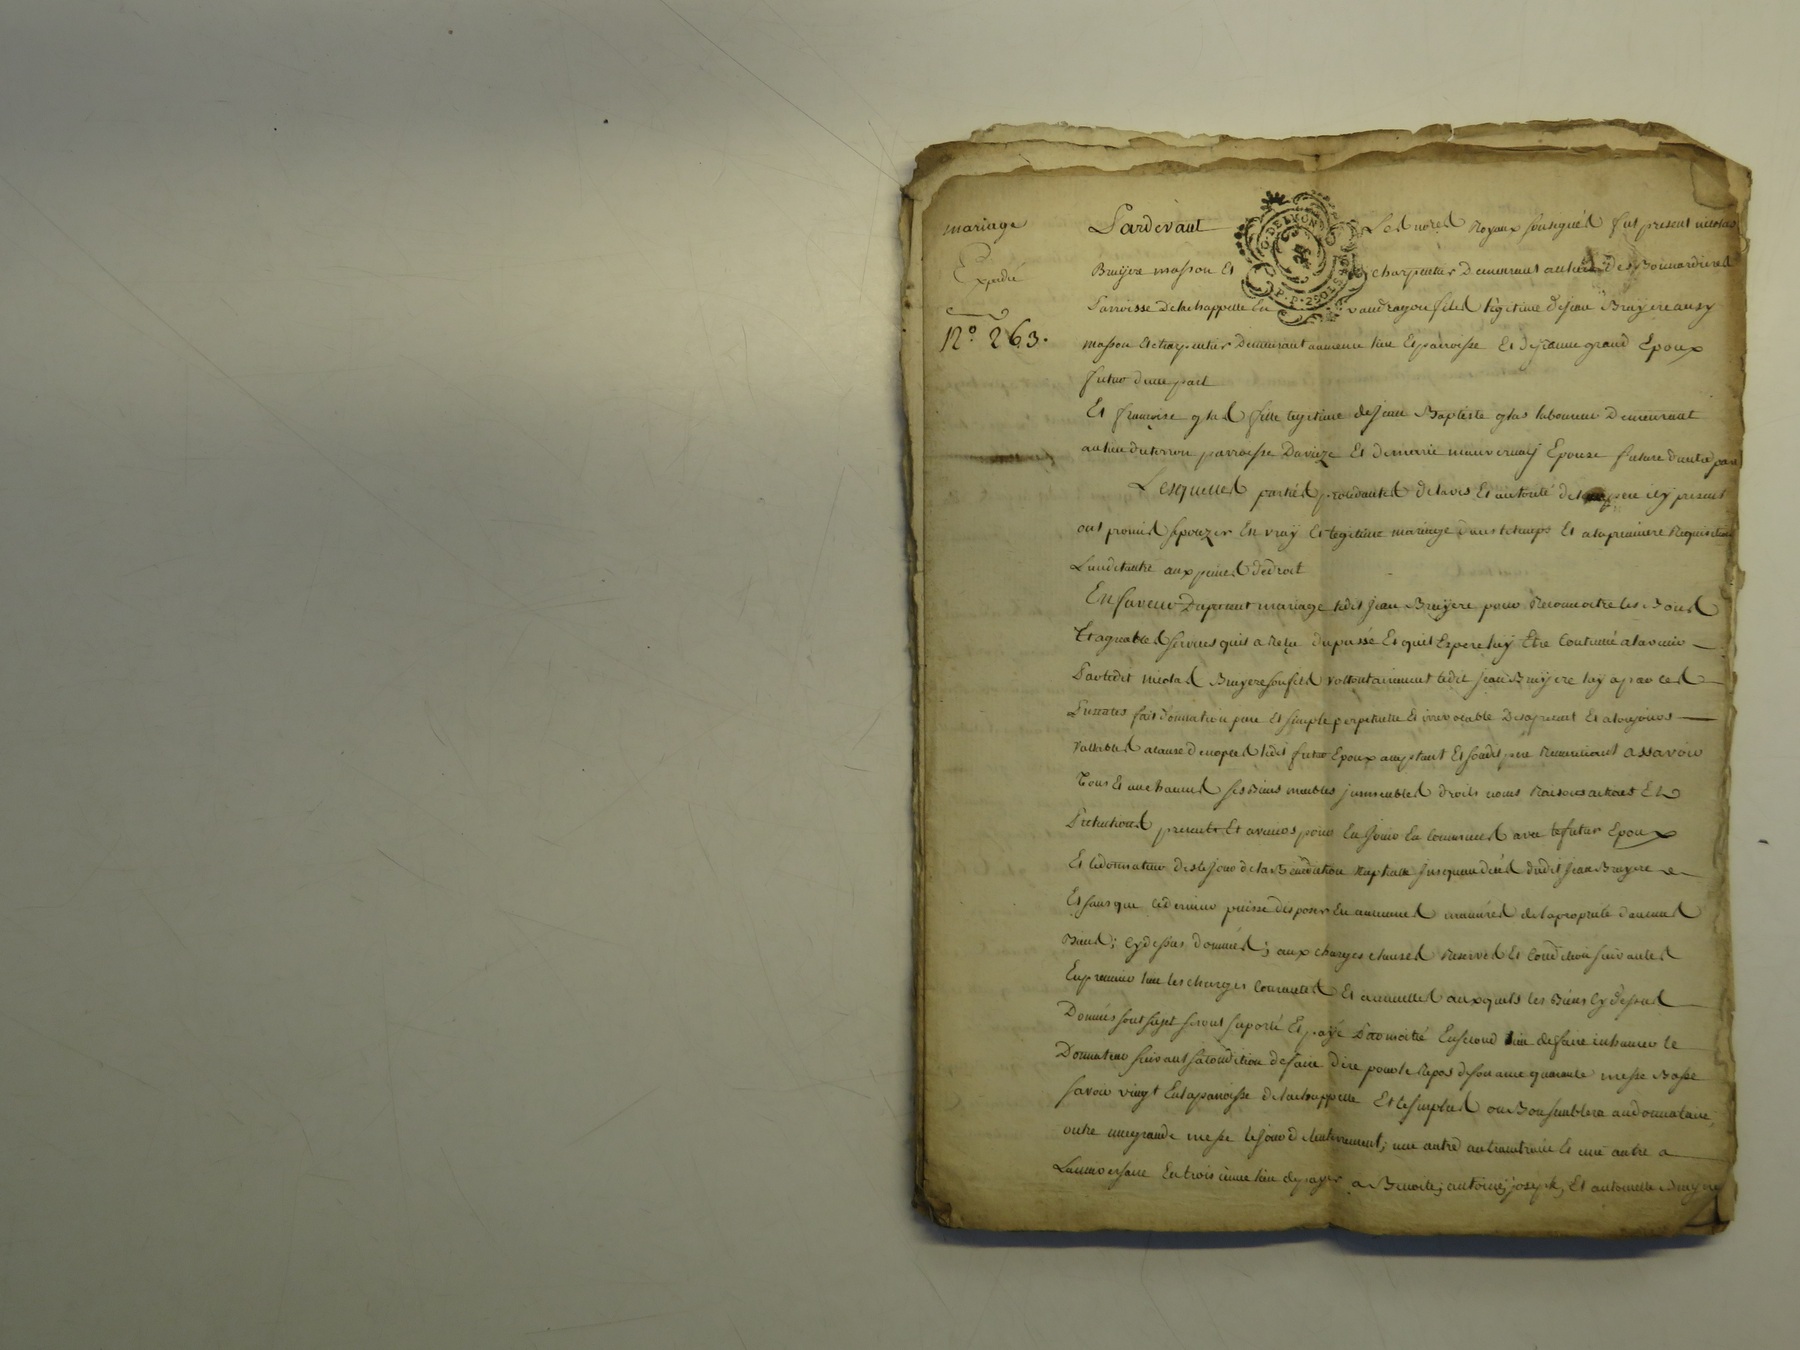 mariage
Expedié
N.º 263.
G. DE LYON
P. P. 2 SOLS
Pardevant Les no.res Royaux sousignés fut present nicolas
Bruÿere masson Et charpentier Demeurant au lieu des Bonnardieres
Parroisse De lachappelle En vaudragon fils légitime de Jean Bruÿere aussy
masson Et charpentier Demeurant au meme lieu Et parroisse Et de Jeanne grand Epoux
futur d'une part
Et francoise glas fille legitime de Jean Baptiste glas laboureur Demeurant
au lieu du terron parroisse Daveize Et de marie mauvernaÿ Epouze future d'autre part
Lesquelles parties procedantes de lavis Et autorité de pere icy present
ont promis s'epouzer En vraÿ Et legitime mariage dans le temps Et a la premiere Requisition
Lun de lautre aux peines de droit
En faveur Du present mariage ledit Jean Bruÿere pour Reconnoitre les Bons
Et agreables services quil a Reçu du passé Et quil Espere luÿ Etre Continué a lavenir
Par ledit nicolas Bruyere son fils vollontairement ledit Jean Bruÿere luÿ a par ces
Presentes fait donnation pure Et simple perpetuelle Et irrevocable Des a present Et a toujours
vallable a cause de nopces ledit futur Epoux acceptant Et sondit pere Remerciant assavoir
Tous Et un chacuns ses Biens meubles immeubles droits noms Raisons actions Et
Pretentions presents Et avenirs pour En Jouir En Communes avec le futur Epoux
Et le donnateur Des le jour de la Benediction nuptialle jusquau deces dudit Jean Bruyere
Et sans que ce dernier puisse disposer En aucunes manieres de la proprieté daucuns
Biens; cy dessus donnés; aux charges clauses Reserves Et Condition suivantes
En premier lieu les charges Courantes Et annuelles auxquels les Biens Cy dessus
Donnés sont sujet seront suporté Et paÿé Par moitié En second lieu de faire inhumer le
Donnateur suivant sa condition de faire dire pour le Repos de son ame quarante messe Basse
savoir vingt En la paroisse de lachappelle Et le surplus ou Bon semblera au donnataire,
outre une grande messe le jour de lenterrement; une autre au trantraine Et une autre a
Lanniversaire En troisieme lieu de payer a Benoite; antoine; joseph, Et antoinette Bruyere